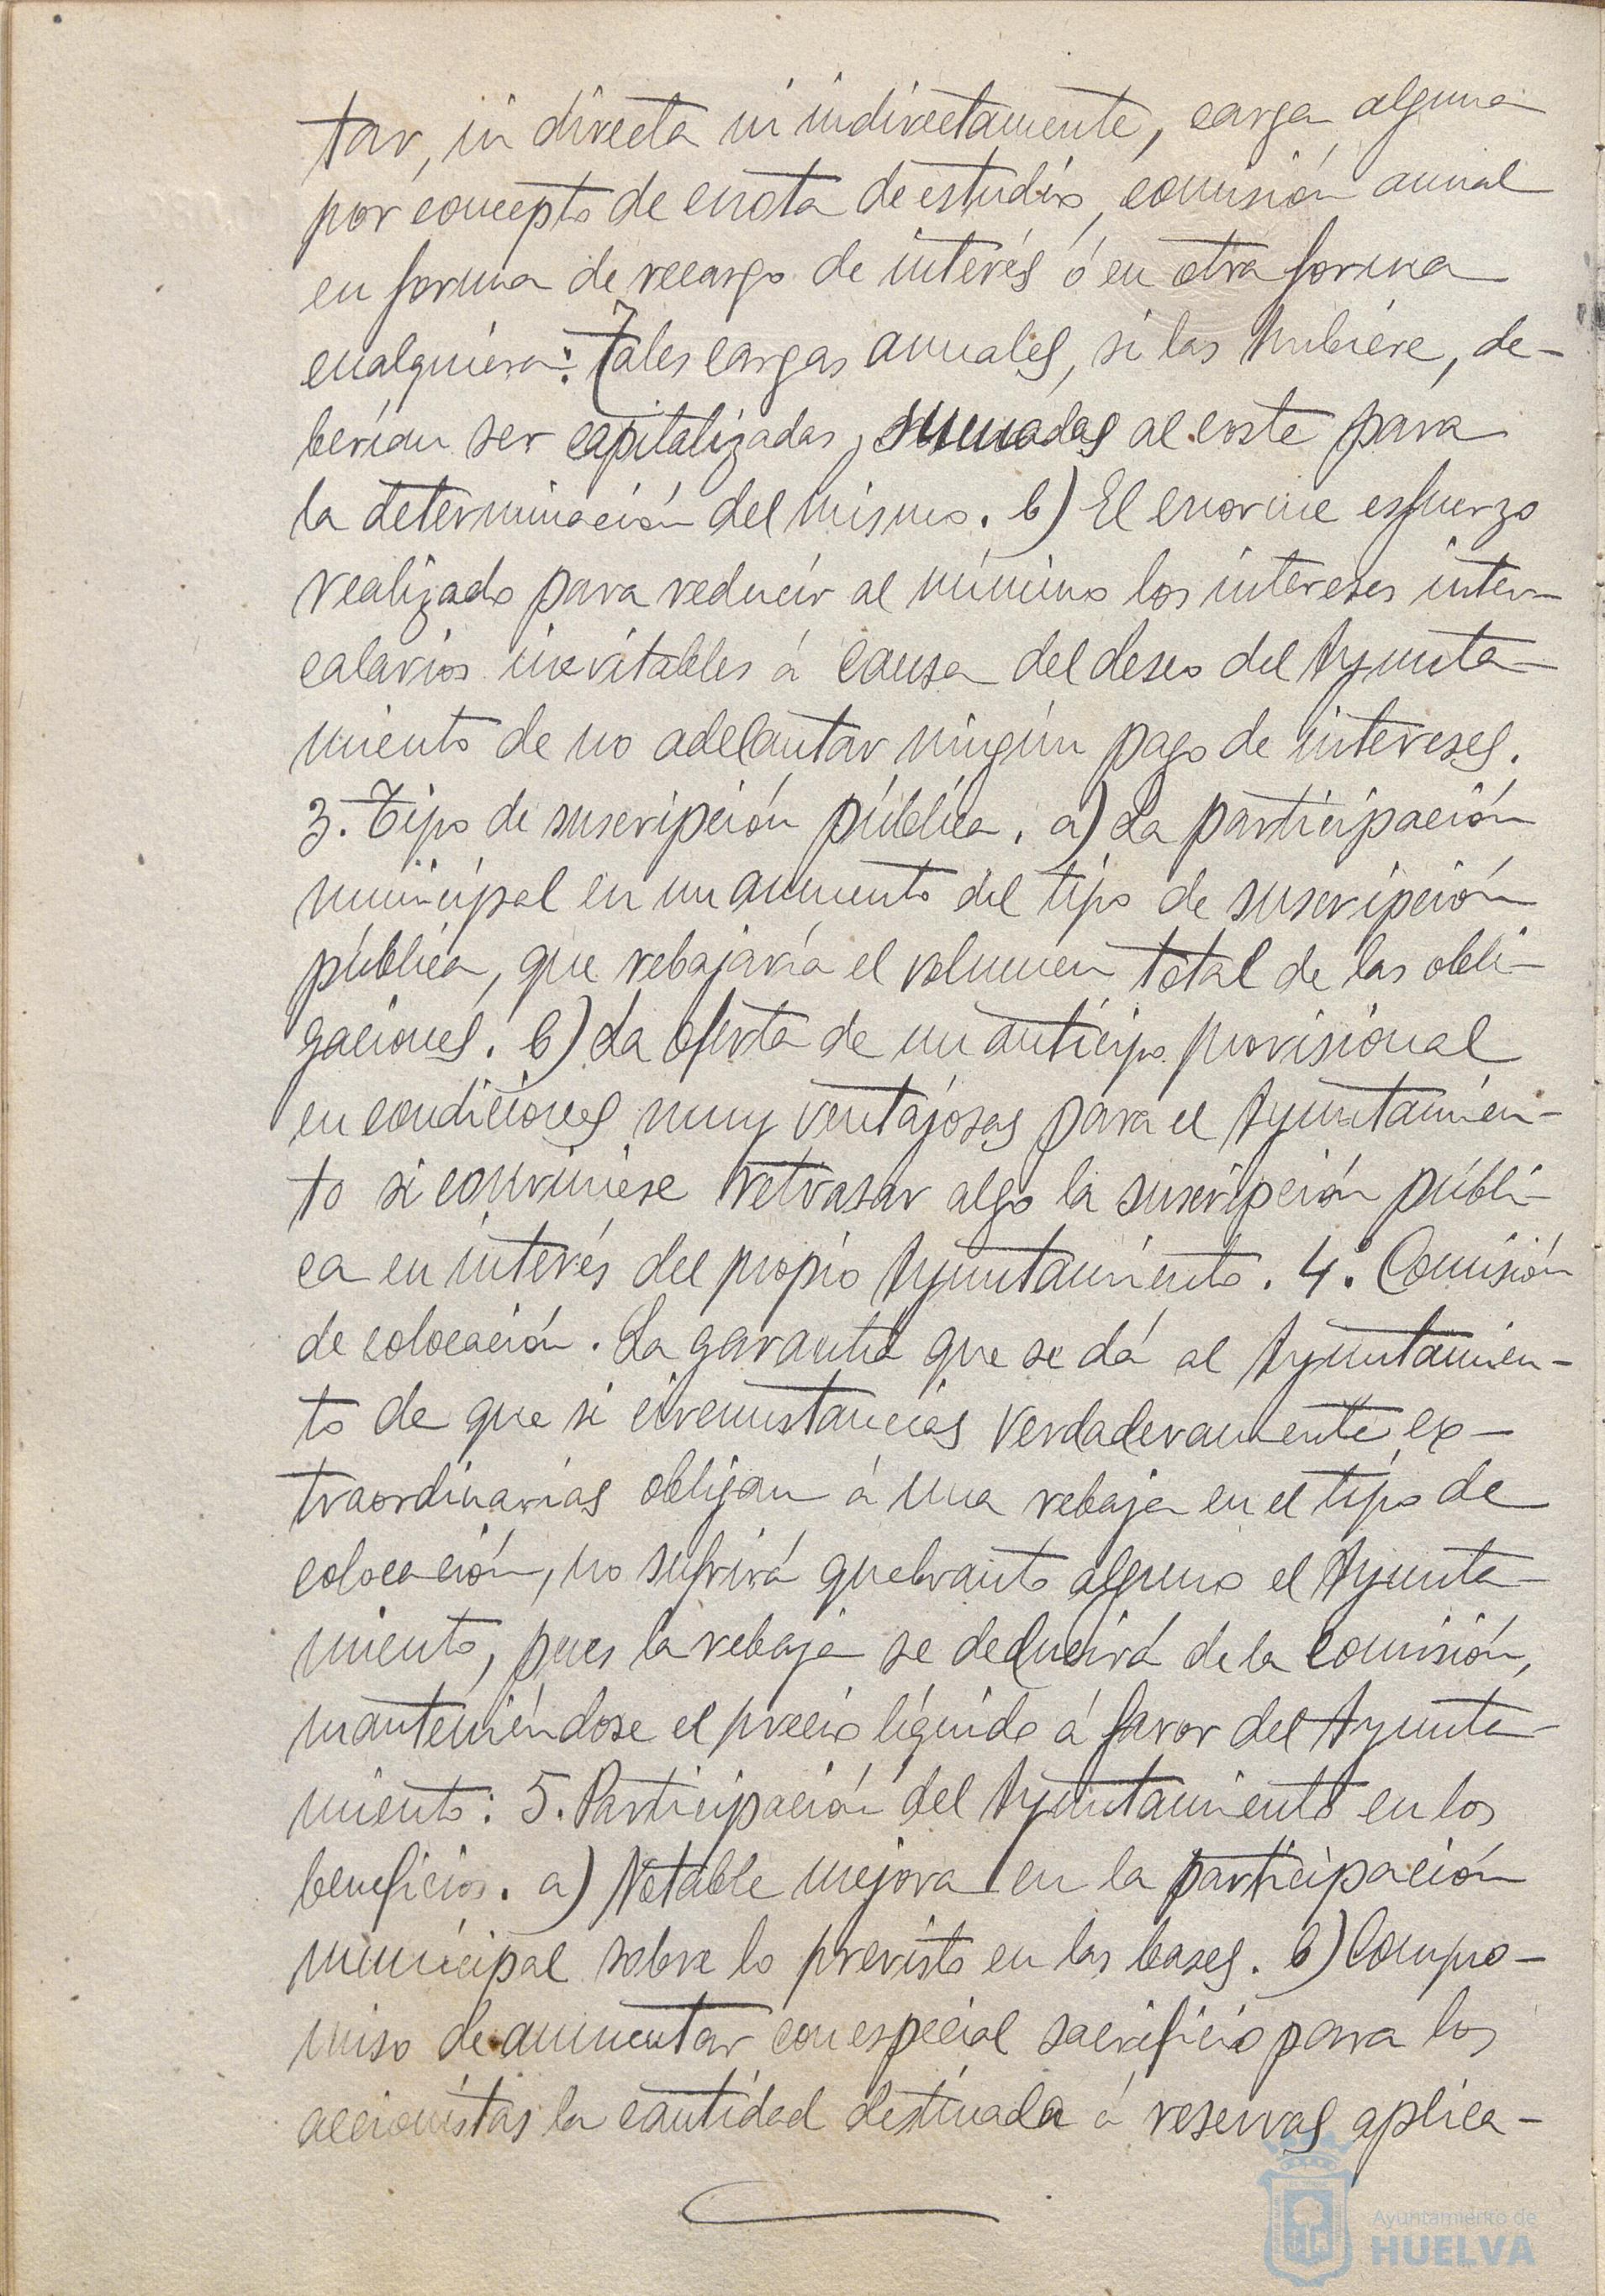 tar, ni directa ni indirectamente, carga alguna
por concepto de cuota de estudio, comisión anual
en forma de recargo de interés ó en otra forma
cualquiera: Tales cargas anuales, si las hubiere, de-
berían ser capitalizadas, sumadas al coste para
la determinación del mismo. b) El enorme esfuerzo
realizado para reducir al mínimo los intereses inter-
calarios inevitables á causa del deseo del Ayunta-
miento de no adelantar ningún pago de intereses.
3. Tipo de suscripción pública. a) La participación
municipal en un aumento del tipo de suscripción
pública, que rebajaría el volumen total de las obli-
gaciones. b) La oferta de un anticipo provisional
en condiciones muy ventajosas para el Ayuntamien-
to si conviniese retrasar algo la suscripción públi-
ca en interés del propio Ayuntamiento. 4.º Comisión
de colocación. La garantía que se dá al Ayuntamien-
to de que si circunstancias verdaderamente ex-
traordinarias obligan á una rebaja en el tipo de
colocación, no sufrirá quebranto alguno el Ayunta-
miento, pues la rebaja se deducirá de la comisión,
manteniéndose el precio líquido á favor del Ayunta-
miento: 5. Participación del Ayuntamiento en los
beneficios. a) Notable mejora en la participación
municipal sobre lo previsto en las bases. b) Compro-
miso de aumentar con especial sacrificio para los
accionistas la cantidad destinada á reservas aplica-
Ayuntamiento de
HUELVA